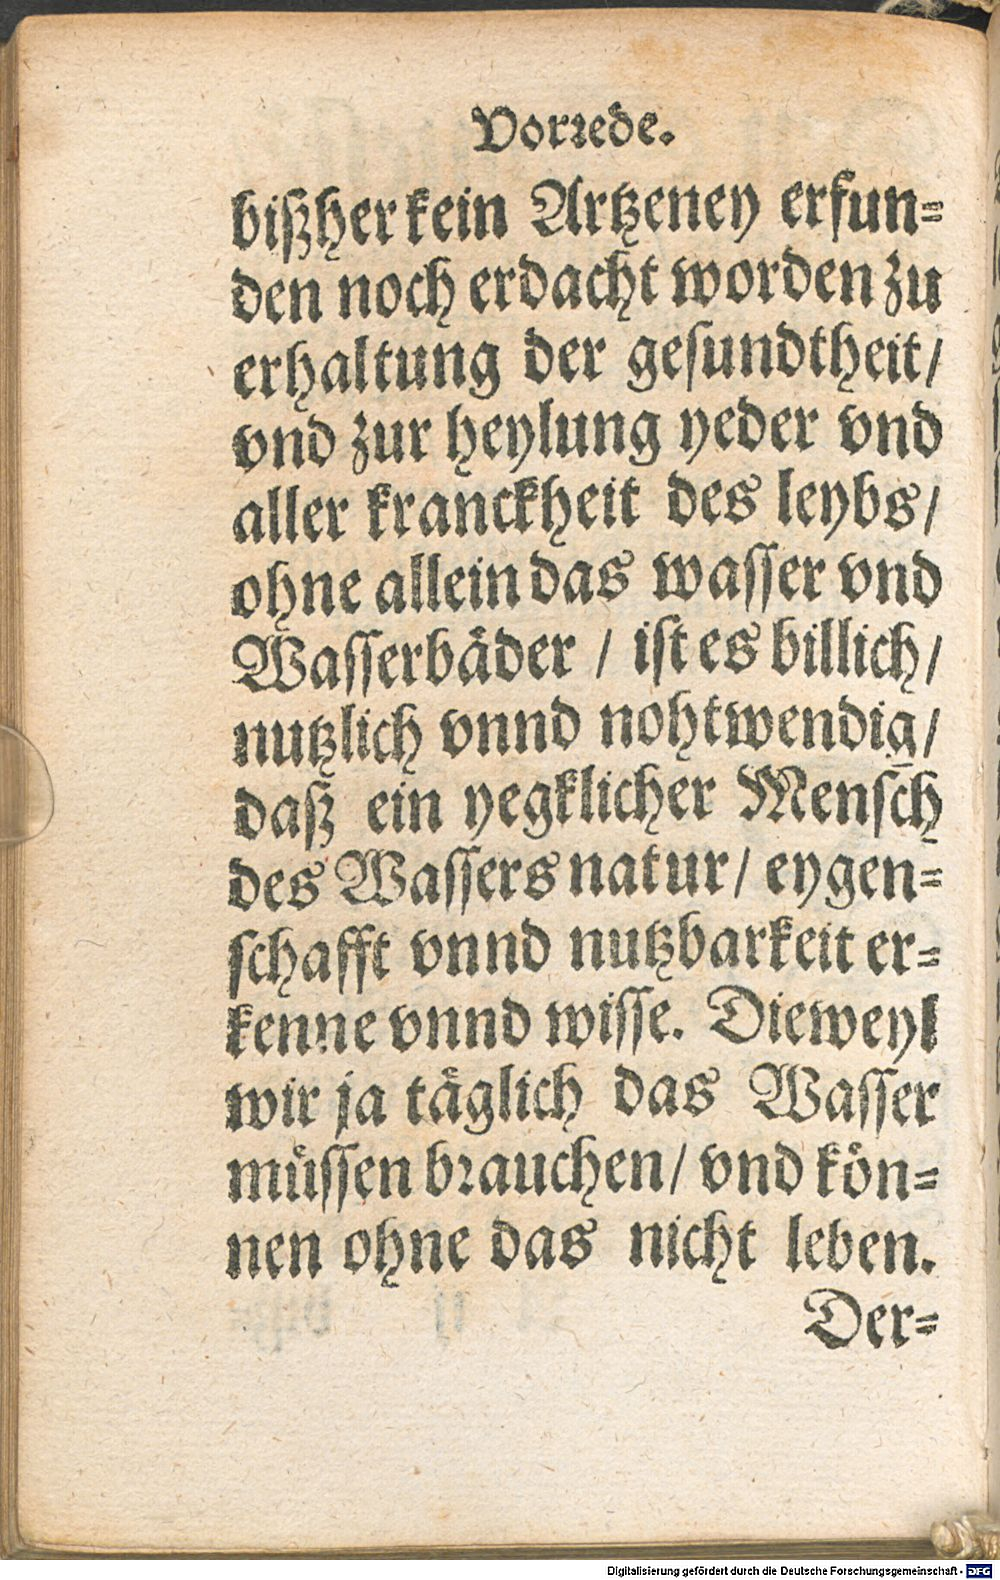 Vorrede.
bißher kein Artzeney erfun=
den noch erdacht worden zu
erhaltung der gesundtheit/
vnd zur heylung yeder vnd
aller kranckheit des leybs/
ohne allein das wasser vnd
Wasserbäder / ist es billich/
nutzlich vnnd nohtwendig/
daß ein yegklicher Mensch
des Wassers natur/ eygen=
schafft vnnd nutzbarkeit er=
kenne vnnd wisse. Dieweyl
wir ja täglich das Wasser
müssen brauchen/ vnd kön=
nen ohne das nicht leben.
Der=
Digitalisierung gefördert durch die Deutsche Forschungsgemeinschaft - DFG